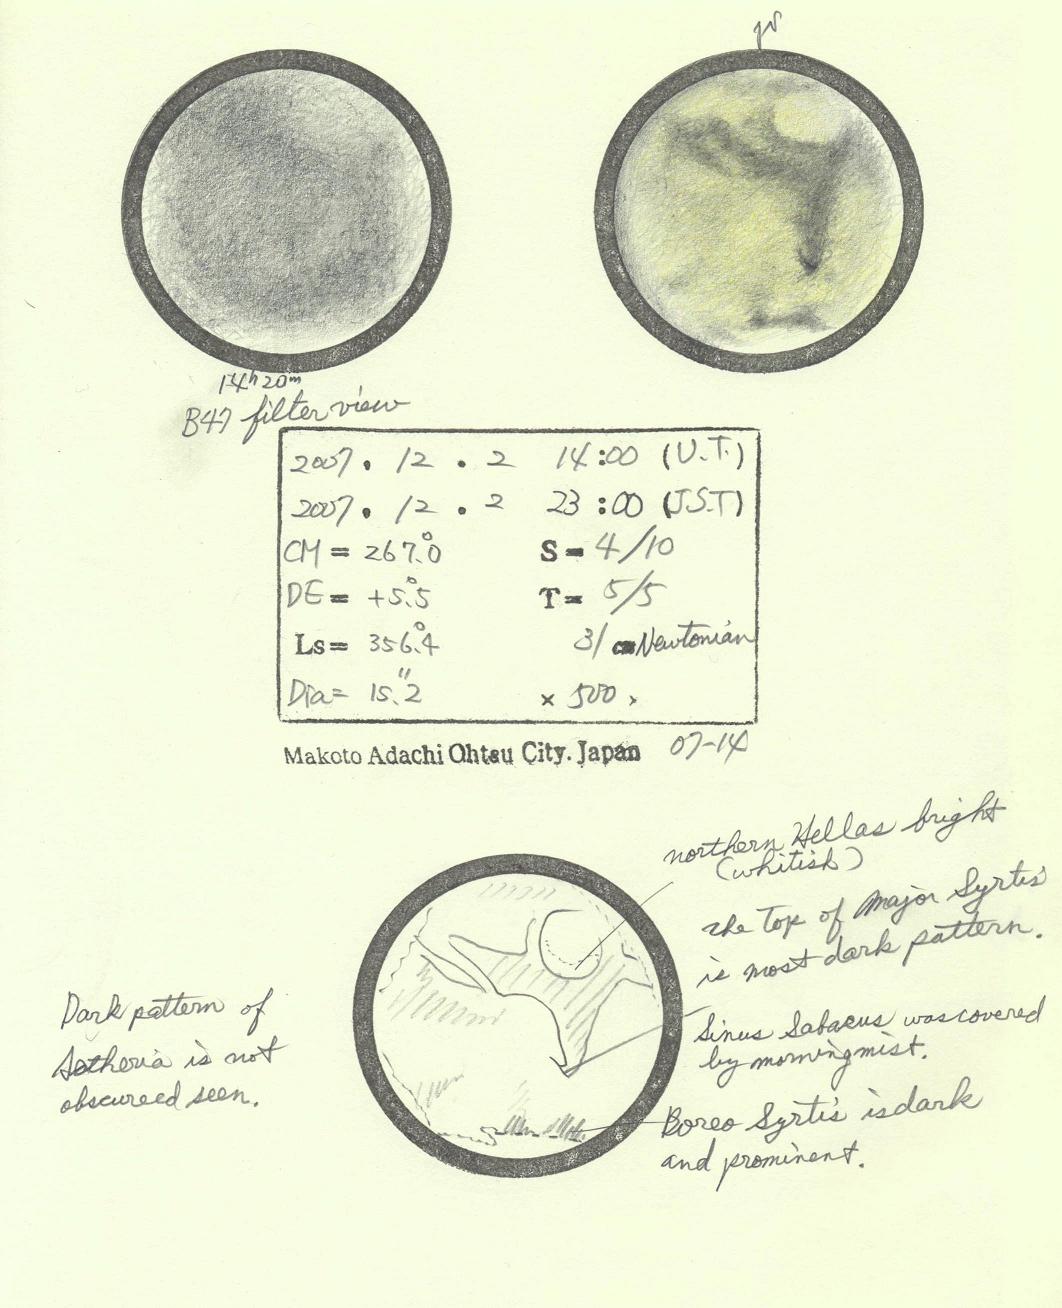 14ʰ20ᵐ
B47 filter view
2007. 12 . 2 14:00 (U.T.)
2007. 12 . 2 23:00 (J.S.T)
CM = 267.°0 S = 4/10
DE = +5.°5 T = 5/5
Ls = 356.°4 31 cm Newtonian
Dia = 15."2 × 500
Makoto Adachi Ohtsu City. Japan 07-14
northern Hellas bright
(whitish)
the Top of Major Syrtis
is most dark pattern.
Dark pattern of
Aetheria is not
obscureed seen.
Sinus Sabaeus was covered
by morning mist.
Boreo Syrtis is dark
and prominent.